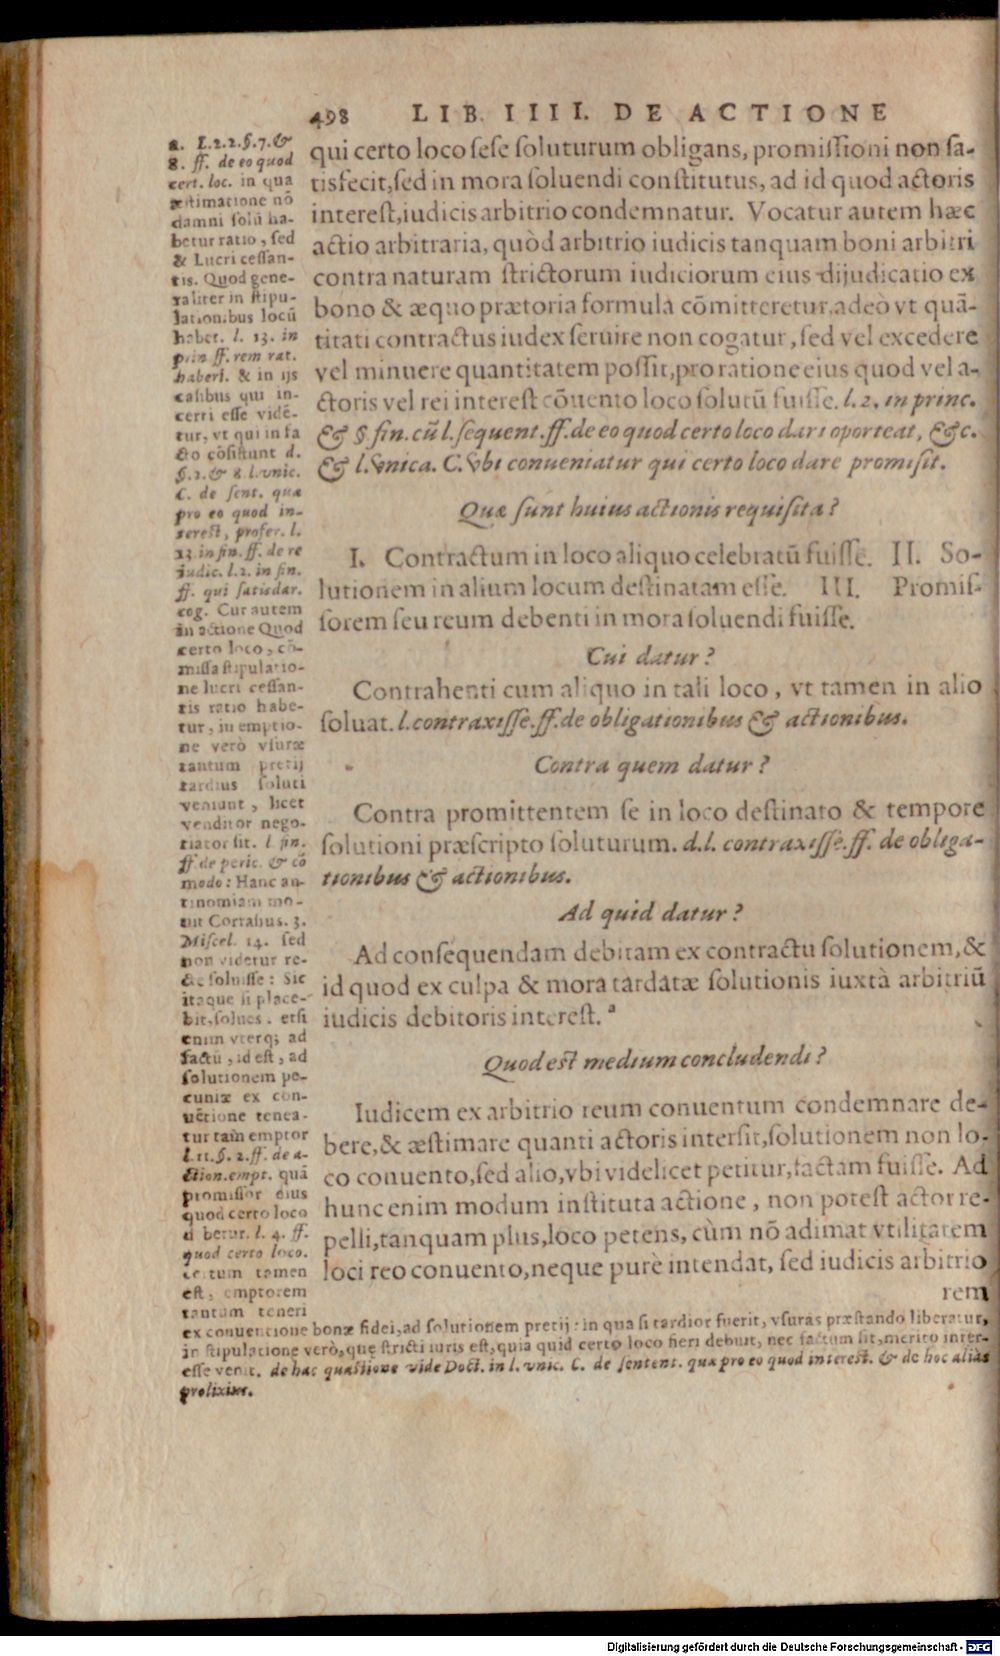 498 LIB. IIII. DE ACTIONE
qui certo loco sese soluturum obligans, promissioni non sa-
tisfecit, sed in mora soluendi constitutus, ad id quod actoris
interest, iudicis arbitrio condemnatur. Vocatur autem hæc
actio arbitraria, quòd arbitrio iudicis tanquam boni arbitri
contra naturam strictorum iudiciorum eius dijudicatio ex
bono & æquo prætoria formula cõmitteretur, adeò vt quã-
titati contractus iudex seruire non cogatur, sed vel excedere
vel minuere quantitatem possit, pro ratione eius quod vel a-
ctoris vel rei interest cõuento loco solutũ fuisse. l. 2. in princ.
& §. fin. cũ l. sequent. ff. de eo quod certo loco dari oporteat, &c.
& l. vnica. C. vbi conueniatur qui certo loco dare promisit.
Quæ sunt huius actionis requisita?
I. Contractum in loco aliquo celebratũ fuisse. II. So-
lutionem in alium locum destinatam esse. III. Promis-
sorem seu reum debendi in mora soluendi fuisse.
Cui datur?
Contrahenti cum aliquo in tali loco, vt tamen in alio
soluat. l. contraxisse. ff. de obligationibus & actionibus.
Contra quem datur?
Contra promittentem se in loco destinato & tempore
solutioni præscripto soluturum. d. l. contraxisse. ff. de obliga-
tionibus & actionibus.
Ad quid datur?
Ad consequendam debitam ex contractu solutionem, &
id quod ex culpa & mora tardatæ solutionis iuxtà arbitriũ
iudicis debitoris interest. a
Quod est medium concludendi?
Iudicem ex arbitrio reum conuentum condemnare de-
bere, & æstimare quanti actoris intersit, solutionem non lo-
co conuento, sed alio, vbi videlicet petitur, factam fuisse. Ad
hunc enim modum instituta actione, non potest actor re-
pelli, tanquam plus, loco petens, cùm nõ adimat vtilitatem
loci reo conuento, neque purè intendat, sed iudicis arbitrio
rem
a. L. 2. 2. §. 7. &
8. ff. de eo quod
cert. loc. in qua
æstimatione nõ
damni solũ ha-
betur ratio, sed
& Lucri cessan-
tis. Quod gene-
raliter in stipu-
lationibus locũ
habet. l. 13. in
prin ff. rem rat.
haberi. & in ijs
casibus qui in-
certi esse vidē-
tur, vt qui in fa
cto cõsistunt d.
§. 2. & 8. l. vnic.
C. de sent. quæ
pro eo quod in-
terest, profer. l.
13. in fin. ff. de re
iudic. l. 2. in fin.
ff. qui satisdar.
cog. Cur autem
in actione Quod
certo loco, cõ-
missa stipulatio-
ne lucri cessan-
tis ratio habe-
tur, in emptio-
ne verò vsuræ
tantum pretij
tardius soluti
veniunt, licet
venditor nego-
tiator sit. l fin.
ff. de peric. & cõ
modo: Hanc an-
tinomiam mo-
uit Corrasius. 3.
Miscel. 14. sed
non videtur re-
cte soluisse: Sic
itaque si place-
bit, solues. etsi
enim vterq; ad
factũ, id est, ad
solutionem pe-
cuniæ ex con-
uētione tenea-
tur tam̃ emptor
l. 11. §. 2. ff. de a-
ction. empt. quã
promissor eius
quod certo loco
d betur. l. 4. ff.
quod certo loco.
certum tamen
est, emptorem
tantum teneri
ex conuentione bonæ fidei, ad solutionem pretij: in qua si tardior fuerit, vsuras præstando liberatur,
in stipulatione verò, quę stricti iuris est, quia quid certo loco fieri debuit, nec factum sit, merito inter-
esse venit. de hac quæstione vide Doct. in l. vnic. C. de sentent. quæ pro eo quod interest. & de hoc aliàs
prolixius.
Digitalisierung gefördert durch die Deutsche Forschungsgemeinschaft - DFG